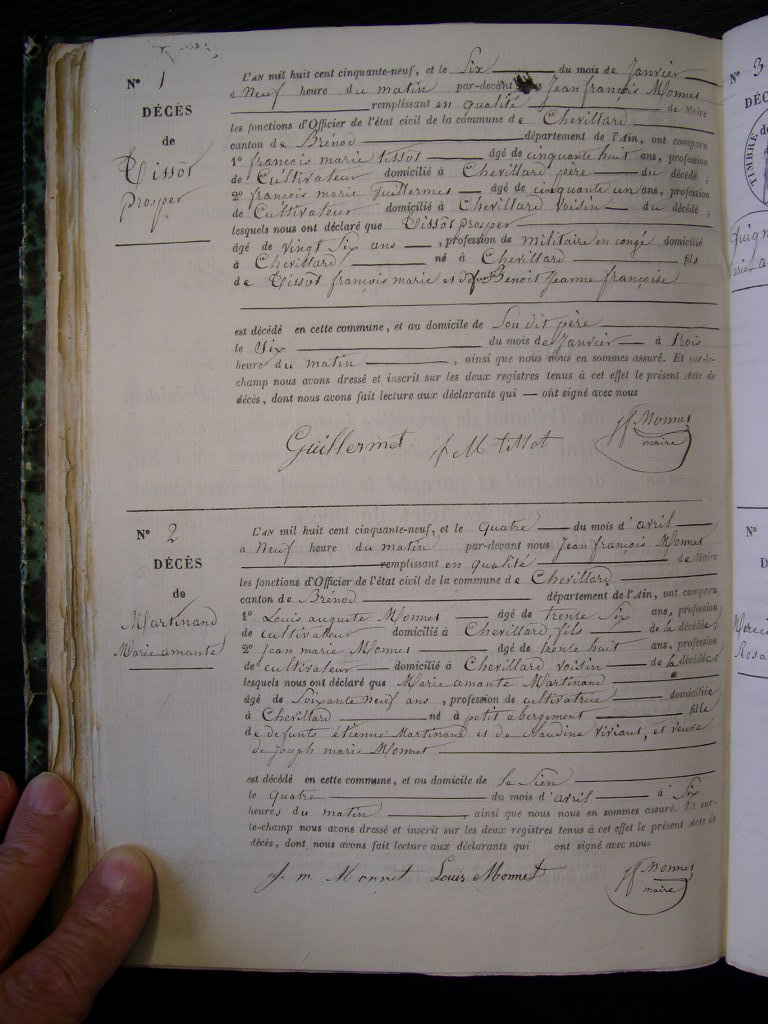 N° 1
DÉCÈS
de
Tissot
Prosper
L'AN mil huit cent cinquante-neuf, et le Six du mois de Janvier
à Neuf heure du matin par-devant Jean françois Monnet
remplissant en qualité de Maire
les fonctions d'Officier de l'état civil de la commune de Chevillard
canton de Brénod département de l'Ain, ont comparu
1° françois marie tissot âgé de cinquante huit ans, profession
de Cultivateur domicilié à Chevillard père du décédé ;
2° françois marie Guillermet âgé de cinquante un ans, profession
de Cultivateur domicilié à Chevillard Voisin du décédé ;
lesquels nous ont déclaré que Tissot prosper
âgé de vingt Six ans , profession de militaire en congé domicilié
à Chevillard né à Chevillard fils
de Tissot françois marie et Benoit Jeanne françoise
est décédé en cette commune, et au domicile de Son dit père
le Six du mois de Janvier à trois
heure du matin , ainsi que nous nous en sommes assuré. Et sur-le-
champ nous avons dressé et inscrit sur les deux registres tenus à cet effet le présent Acte de
décès, dont nous avons fait lecture aux déclarants qui — ont signé avec nous
Guillermet f M tissot Monnet
maire
N° 2
DÉCÈS
de
Martinand
Marie amante
L'AN mil huit cent cinquante-neuf, et le quatre du mois d'avril
à Neuf heure du matin par-devant nous Jean françois Monnet
remplissant en qualité de Maire
les fonctions d'Officier de l'état civil de la commune de Chevillard
canton de Brénod département de l'Ain, ont comparu
1° Louis auguste Monnet âgé de trente Six ans, profession
de cultivateur domicilié à Chevillard, fils de la décédée ;
2° Jean marie Monnet âgé de trente huit ans, profession
de cultivateur domicilié à Chevillard voisin de la décédée ;
lesquels nous ont déclaré que Marie amante Martinand
âgé de Soixante neuf ans , profession de cultivatrice domiciliée
à Chevillard né à petit abergement fille
de defunts étienne Martinand et de Claudine Viviant, et veuve
de Joseph marie Monnet
est décédé en cette commune, et au domicile de le Sien
le quatre du mois d'avril à Six
heures du matin , ainsi que nous nous en sommes assuré. Et sur-
le-champ nous avons dressé et inscrit sur les deux registres tenus à cet effet le présent Acte de
décès, dont nous avons fait lecture aux déclarants qui ont signé avec nous
J. m Monnet Louis Monnet Monnet
maire
N° 3
DÉC
TIMBRE
N°
D